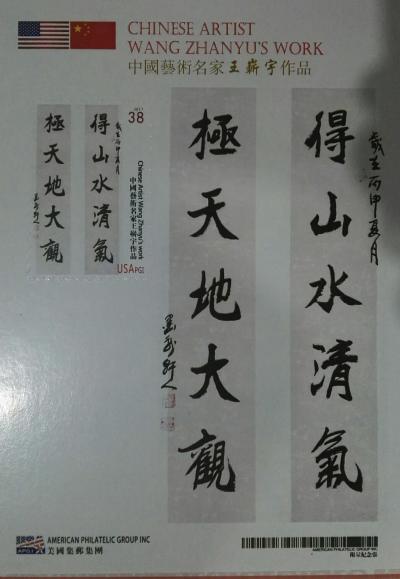 CHINESE ARTIST
WANG ZHANYU'S WORK
中國藝術名家王嶄宇作品
得山水清氣
極天地大觀
歲在丙申夏月
2017
38
Chinese Artist Wang Zhanyu's work
中國藝術名家王嶄宇作品
USA PGI
得山水清氣
極天地大觀
歲在丙申夏月
APGI
AMERICAN PHILATELIC GROUP INC
美國集郵集團
AMERICAN PHILATELIC GROUP INC
限量紀念張